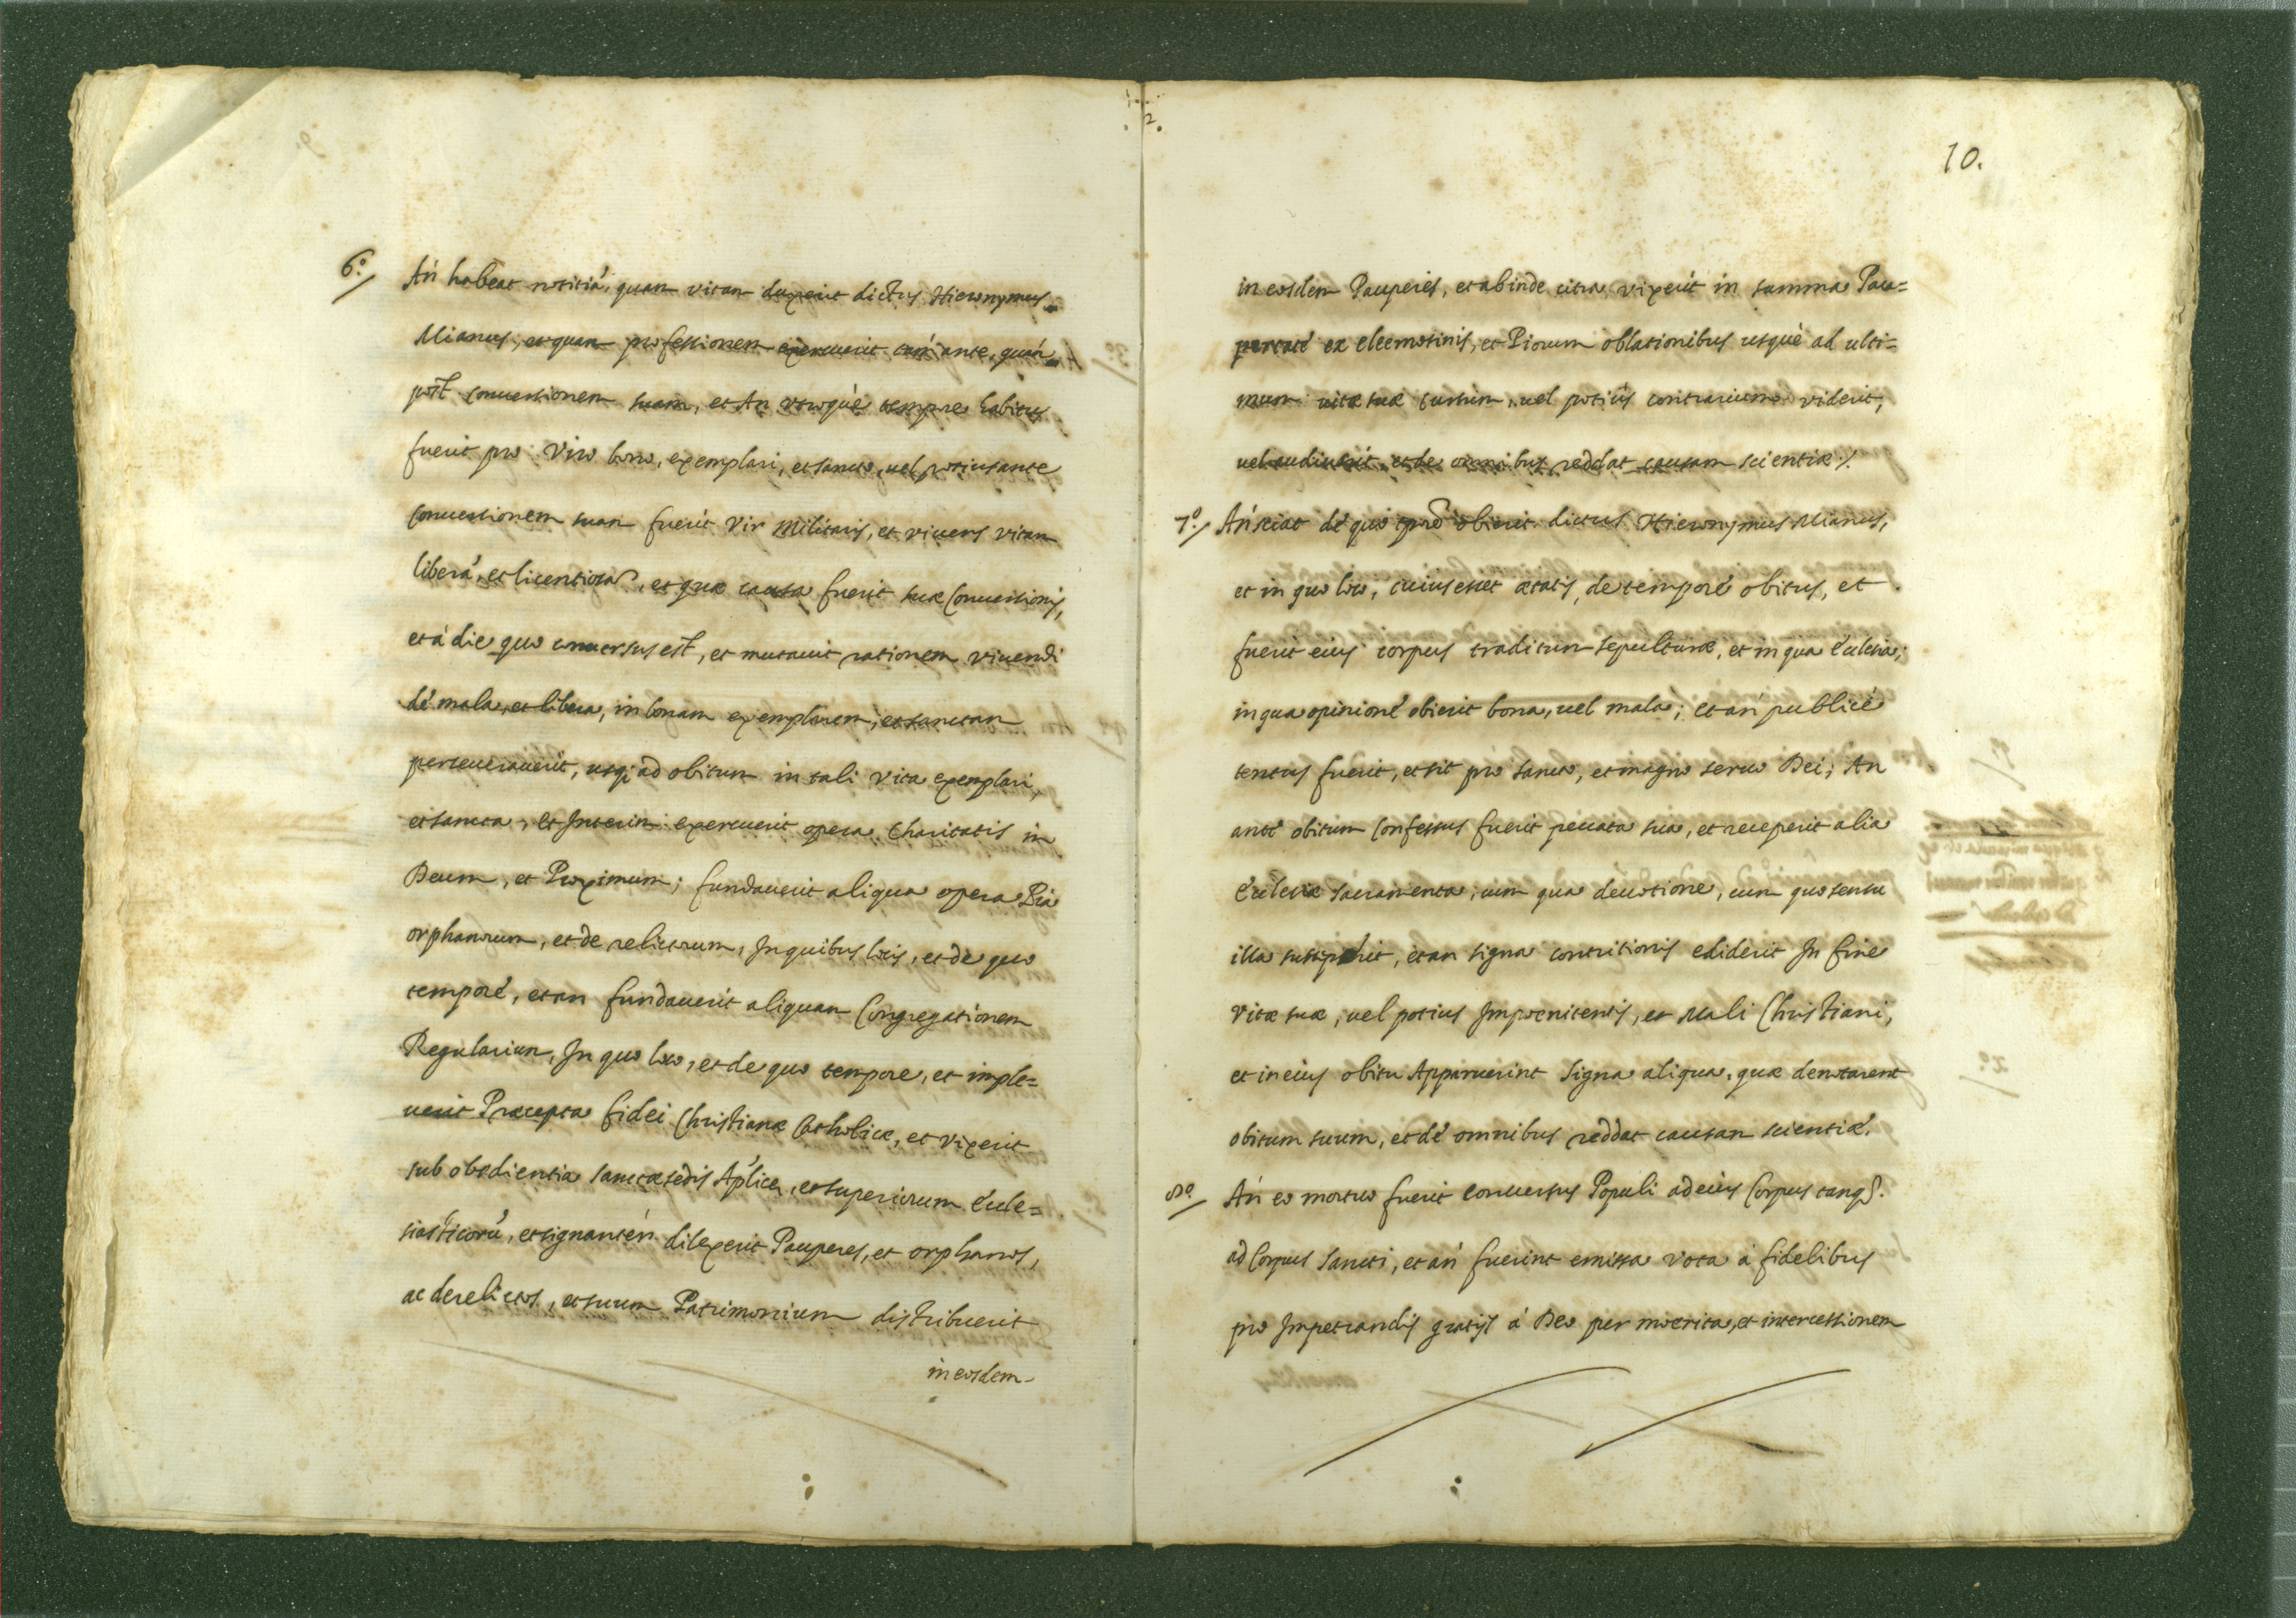 6.º/ An habeat notitiá, quam vitam duxerit dictus Hieronymus
Mianus, et quam professionem exercuerit tam ante, quam
post conversionem suam, et An utroque tempore habitus
fuerit pro Viro bono, exemplari, et sancto, vel potius ante
conversionem suam fuerit Vir Militaris, et vivens vitam
liberá, et licentiosa, et quæ causa fuerit suæ Conversionis,
et á die quo conversus est, et mutavit rationem vivendi
dé mala, et libera, in bonam exemplarem, et sanctam
perseveraverit, usq; ad obitum in tali vita exemplari,
et sancta, et Interim exercuerit opera Charitatis in
Deum, et Proximum; fundaverit aliqua opera Pia
orphanorum, et de relictorum, In quibus locis, et de quo
temporé, et an fundaverit aliquam Congregationem
Regularium, In quo loco, et de quo tempore, et imple=
verit Præcepta fidei Christianæ Catholicæ, et vixerit
sub obedientia sanctæ sedis Aplicæ, et superiorum Eccle=
siasticorú, et signantér dilexerit Pauperes, et orphanos,
ac derelictos, et suum Patrimonium distribuerit
in eosdem
10.
in eosdem Pauperes, et abinde citra vixerit in summa Pau=
pertaté ex eleemosinis, et Piorum oblationibus usquè ad ulti=
mum vitæ suæ cursum, vel potiùs contrarium viderit,
vel audiverit, et de omnibus reddat causam scientiæ ./.
7º/ An sciat dé quo obierit dictus Hieronymus Mianus,
et in quo loco, cuius esset ætatis, de temporé obitus, et
fuerit eius corpus traditum sepulturæ, et in qua Ecclesia;
in qua opinioné obierit bona, vel mala; et an publicé
tentus fuerit, et sit pro sancto, et magno servo Dei; An
anté obitum confessus fuerit peccata sua, et receperit alia
Ecclesiæ sacramenta, cum qua devotione, cum quo sensu
illa susceperit, et an signa contritionis ediderit In fine
Vitæ suæ, vel potius Impoenitentis, et Mali Christiani,
et in eius obitu Apparuerint signa aliqua, quæ denotarent
obitum suum, et dé omnibus reddat causam scientiæ.
8º/ An eo mortuo fuerit concursus Populi ad eius Corpus tanq.
ad Corpus Sancti, et an fuerint emissa vota á fidelibus
pro Impetrandis gratijs á Deo per moerita, et intercessionem